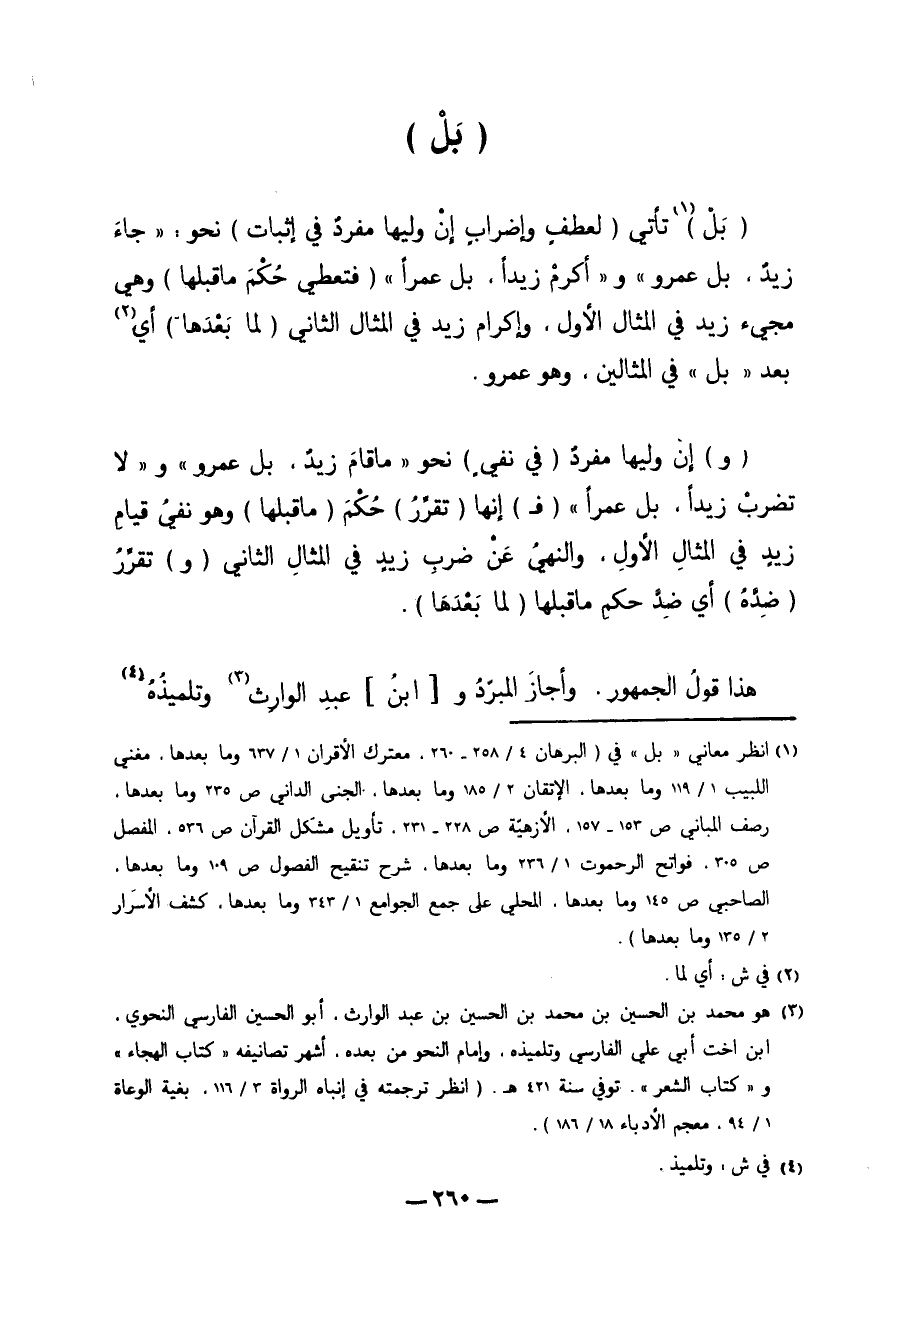 ( بَلْ )
( بَلْ )(١) تأتي ( لعطفٍ وإضرابٍ إنْ وليها مفردٌ في إثبات ) نحو : « جاءَ
زيدٌ ، بل عمرو » و « أكرمْ زيداً ، بل عمراً » ( فتعطي حُكْمَ ماقبلها ) وهي
مجيء زيد في المثال الأول ، وإكرام زيد في المثال الثاني ( لما بَعْدَها ) أي(٢)
بعد « بل » في المثالين ، وهو عمرو .
( و ) إنْ وليها مفردٌ ( في نفيٍ ) نحو « ماقامَ زيدٌ ، بل عمرو » و « لا
تضربْ زيداً ، بل عمراً » ( فـ ) إنها ( تقرِّرُ ) حُكْمَ ( ماقبلها ) وهو نفيُ قيامِ
زيدٍ في المثالِ الأولِ ، والنهيُ عَنْ ضربِ زيدٍ في المثالِ الثاني ( و ) تقرِّرُ
( ضِدَّهُ ) أي ضِدَّ حكمِ ماقبلها ( لما بَعْدَهَا ) .
هذا قولُ الجمهور . وأجازَ المبرّدُ و [ ابنُ ] عبدِ الوارِث(٣) وتلميذُهُ(٤)
(١) انظر معاني « بل » في ( البرهان ٤ / ٢٥٨ ـ ٢٦٠ ، معترك الأقران ١ / ٦٣٧ وما بعدها ، مغني
اللبيب ١ / ١١٩ وما بعدها ، الإتقان ٢ / ١٨٥ وما بعدها ، الجنى الداني ص ٢٣٥ وما بعدها ،
رصف المباني ص ١٥٣ ـ ١٥٧ ، الأزهيّة ص ٢٢٨ ـ ٢٣١ ، تأويل مشكل القرآن ص ٥٣٦ ، المفصل
ص ٣٠٥ ، فواتح الرحموت ١ / ٢٣٦ وما بعدها ، شرح تنقيح الفصول ص ١٠٩ وما بعدها ،
الصاحبي ص ١٤٥ وما بعدها ، المحلي على جمع الجوامع ١ / ٣٤٣ وما بعدها ، كشف الأسرار
٢ / ١٣٥ وما بعدها ) .
(٢) في ش : أي لما .
(٣) هو محمد بن الحسين بن محمد بن الحسين بن عبد الوارث ، أبو الحسين الفارسي النحوي ،
ابن اخت أبي علي الفارسي وتلميذه ، وإمام النحو من بعده ، أشهر تصانيفه « كتاب الهجاء »
و « كتاب الشعر » . توفي سنة ٤٢١ هـ . ( انظر ترجمته في إنباه الرواة ٣ / ١١٦ ، بغية الوعاة
١ / ٩٤ ، معجم الأدباء ١٨ / ١٨٦ ) .
(٤) في ش : وتلميذ .
— ٢٦٠ —